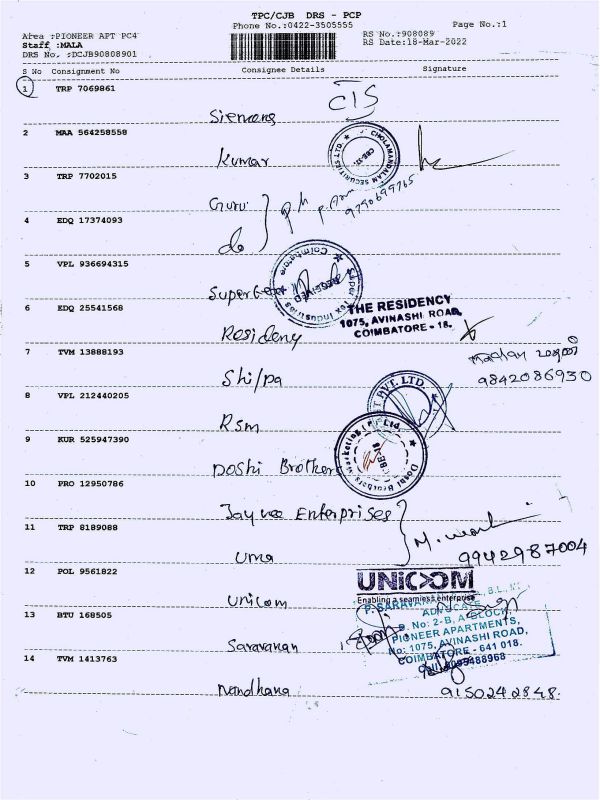 TPC/CJB DRS - PCP
Phone No.:0422-3505555
Page No.:1
Area :PIONEER APT PC4
Staff :MALA
DRS No. :DCJB90808901
RS No.:908089
RS Date:18-Mar-2022
S No Consignment No Consignee Details Signature
1 TRP 7069861
Siemens CIS
2 MAA 564258558
Kumar
CHOLAMANDALAM SECURITIES LTD.
3 TRP 7702015
Guru
9790699765
4 EDQ 17374093
do
5 VPL 936694315
Super
Coimbatore
RECEIVED
Tex Industries
6 EDQ 25541568
Residency
THE RESIDENCY
1075, AVINASHI ROAD,
COIMBATORE - 18.
7 TVM 13888193
Shilpa
9842086930
8 VPL 212440205
Rsm
PVT. LTD.
9 KUR 525947390
Doshi Brothers
Doshi Brothers Marketing (P) Ltd.
CBE-18
10 PRO 12950786
Jayvee Enterprises
11 TRP 8189088
Uma
9942987004
12 POL 9561822
Unicom
UNICOM
Enabling a seamless enterprise
13 BTU 168505
Saravanan
P. SARAVANAN, B.L.,
ADVOCATE
D. No: 2-B, A-BLOCK
PIONEER APARTMENTS,
No: 1075, AVINASHI ROAD,
COIMBATORE - 641 018.
14 TVM 1413763
Nandhana
9150242848